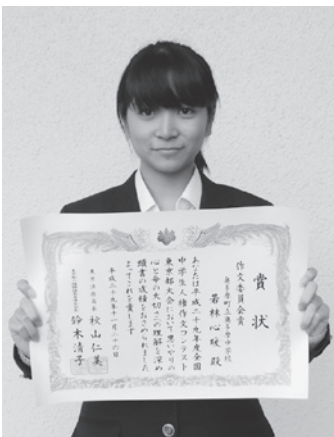 賞状
作文委員会賞
奥多摩町立奥多摩中学校
若林心暖 殿
あなたは平成二十九年度全国
中学生人権作文コンテスト
東京都大会において思いやりの
心と命の大切さの理解を深め
頭書の成績をおさめられました
よってこれを賞します
平成二十九年十一月二十六日
東京法務局長 秋山仁美
鈴木清子